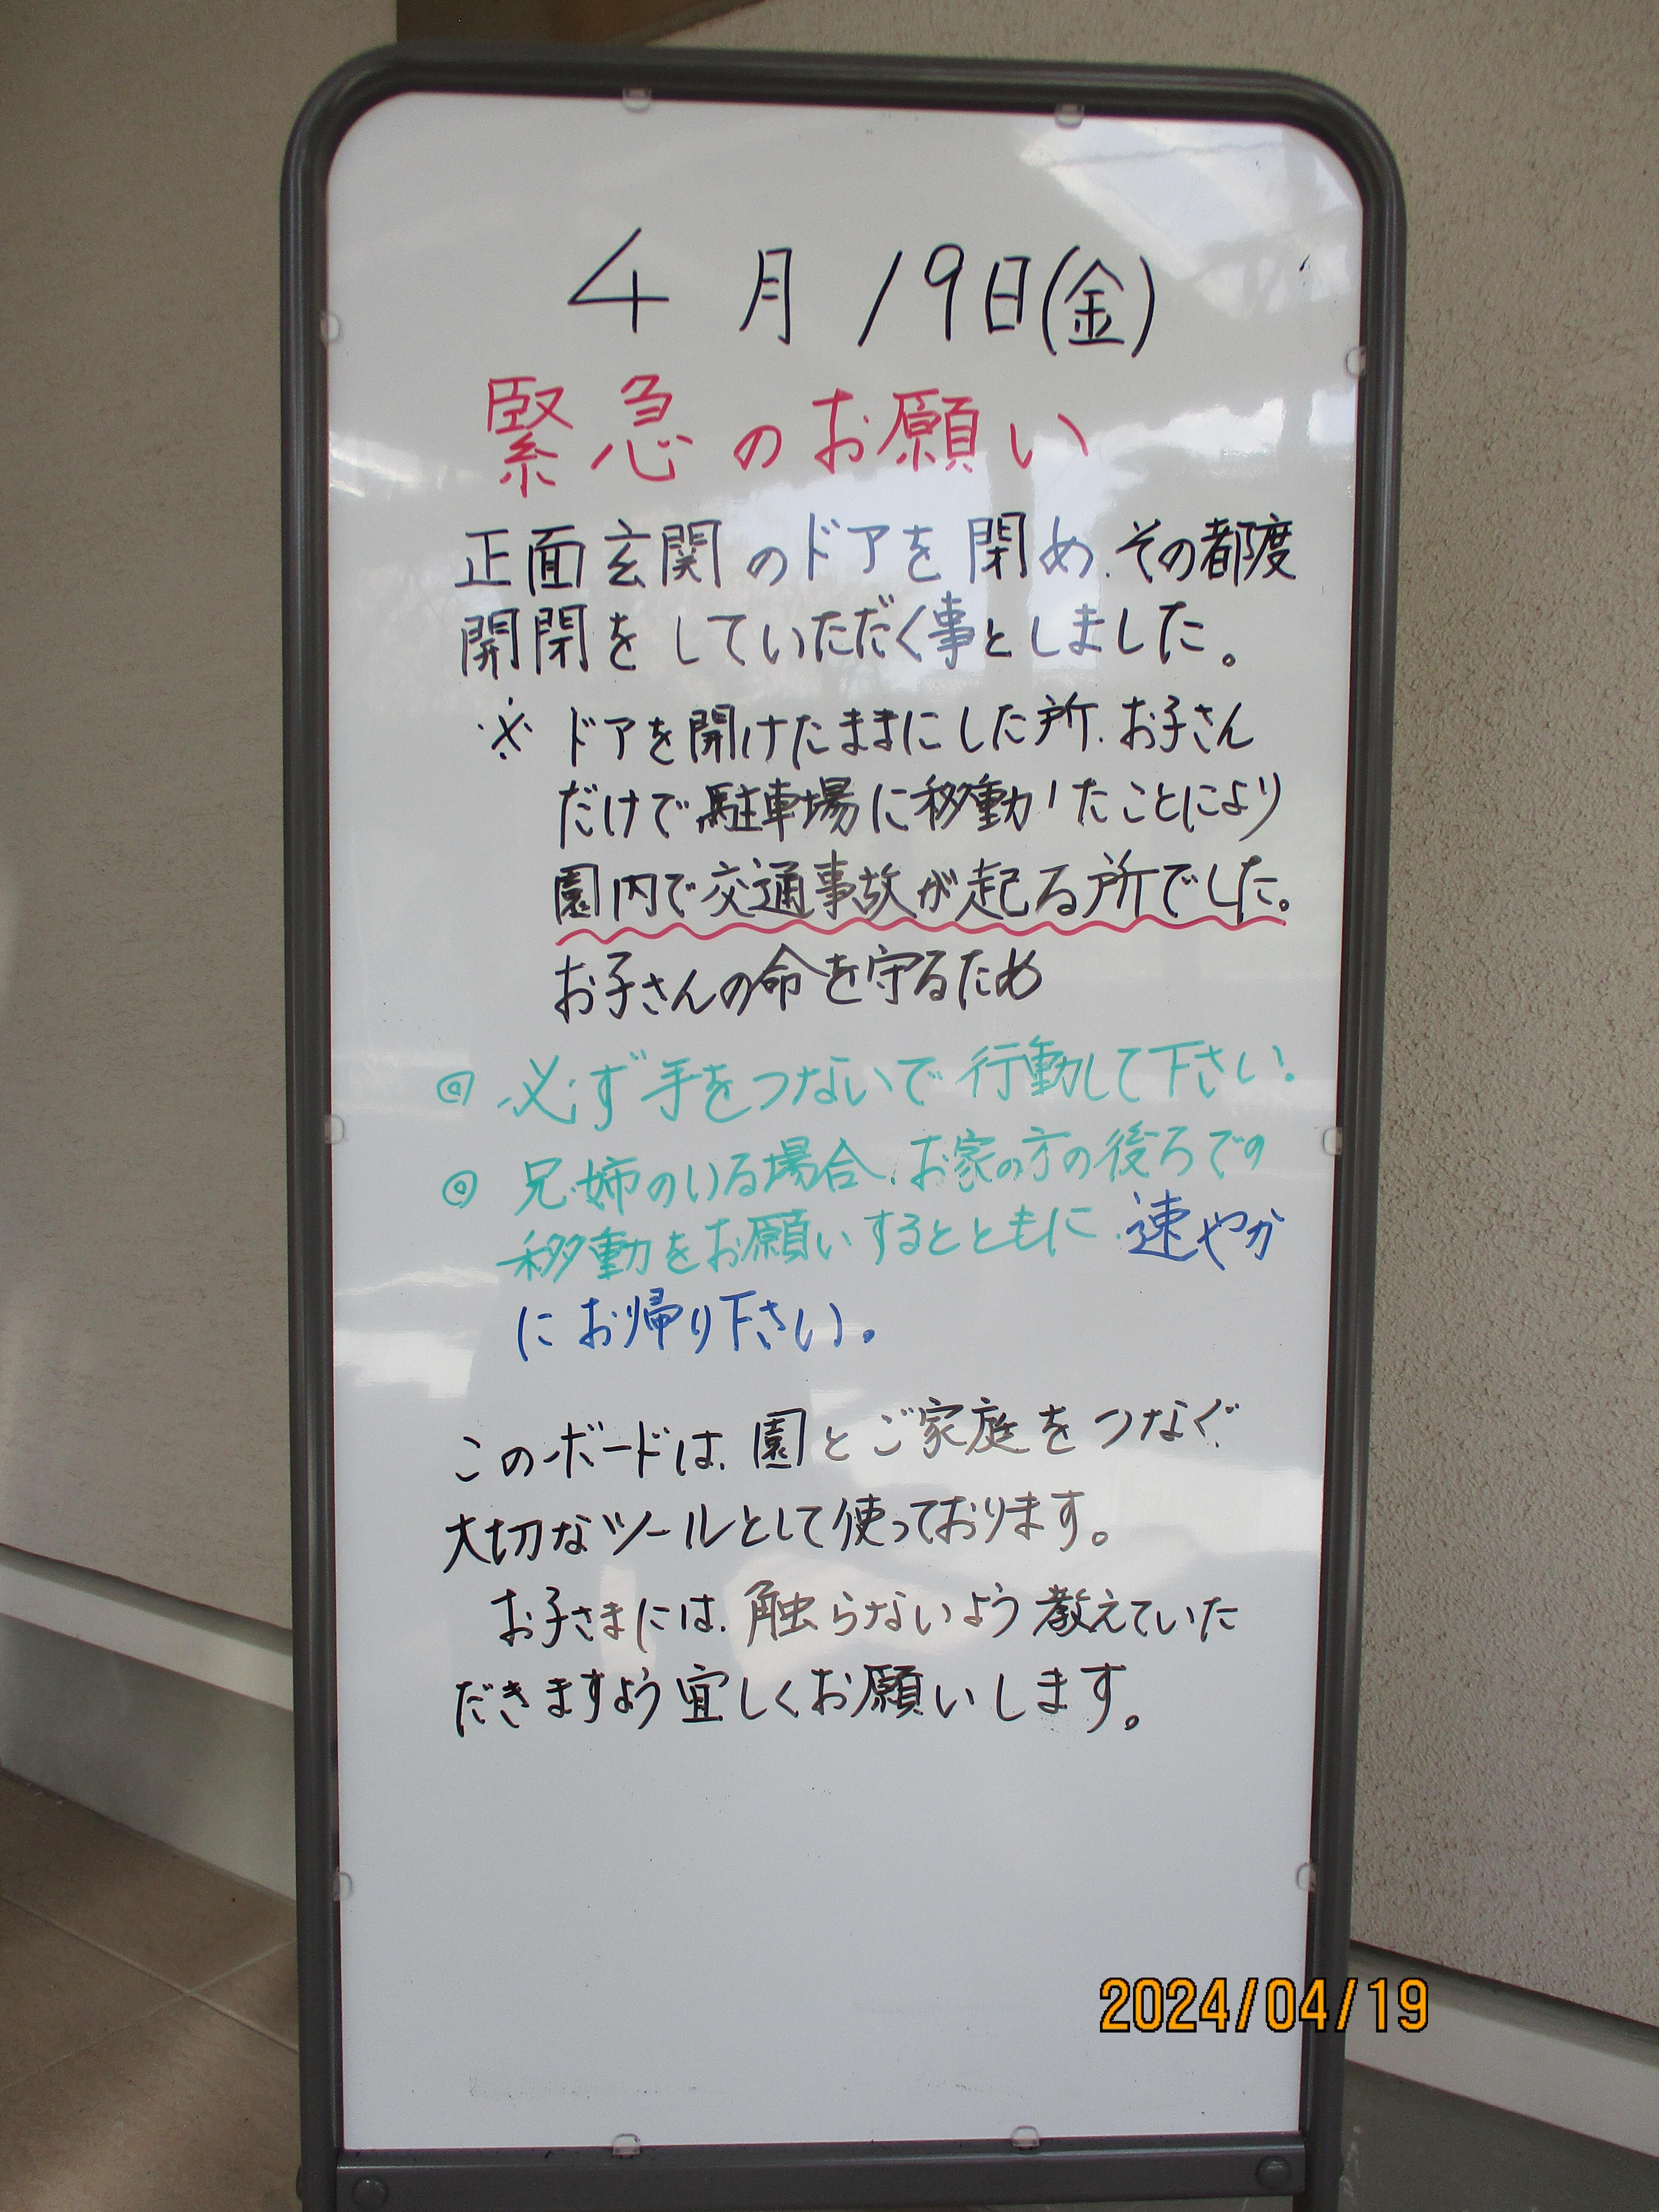 4月19日(金)
緊急のお願い
正面玄関のドアを閉め、その都度
開閉をしていただく事としました。
※ ドアを開けたままにした所、お子さん
だけで駐車場に移動したことにより
園内で交通事故が起る所でした。
お子さんの命を守るため
◎ 必ず手をつないで行動して下さい。
◎ 兄・姉のいる場合、お家の方の後ろでの
移動をお願いするとともに、速やか
にお帰り下さい。
このボードは、園とご家庭をつなぐ、
大切なツールとして使っております。
お子さまには、触らないよう教えていた
だきますよう宜しくお願いします。
2024/04/19